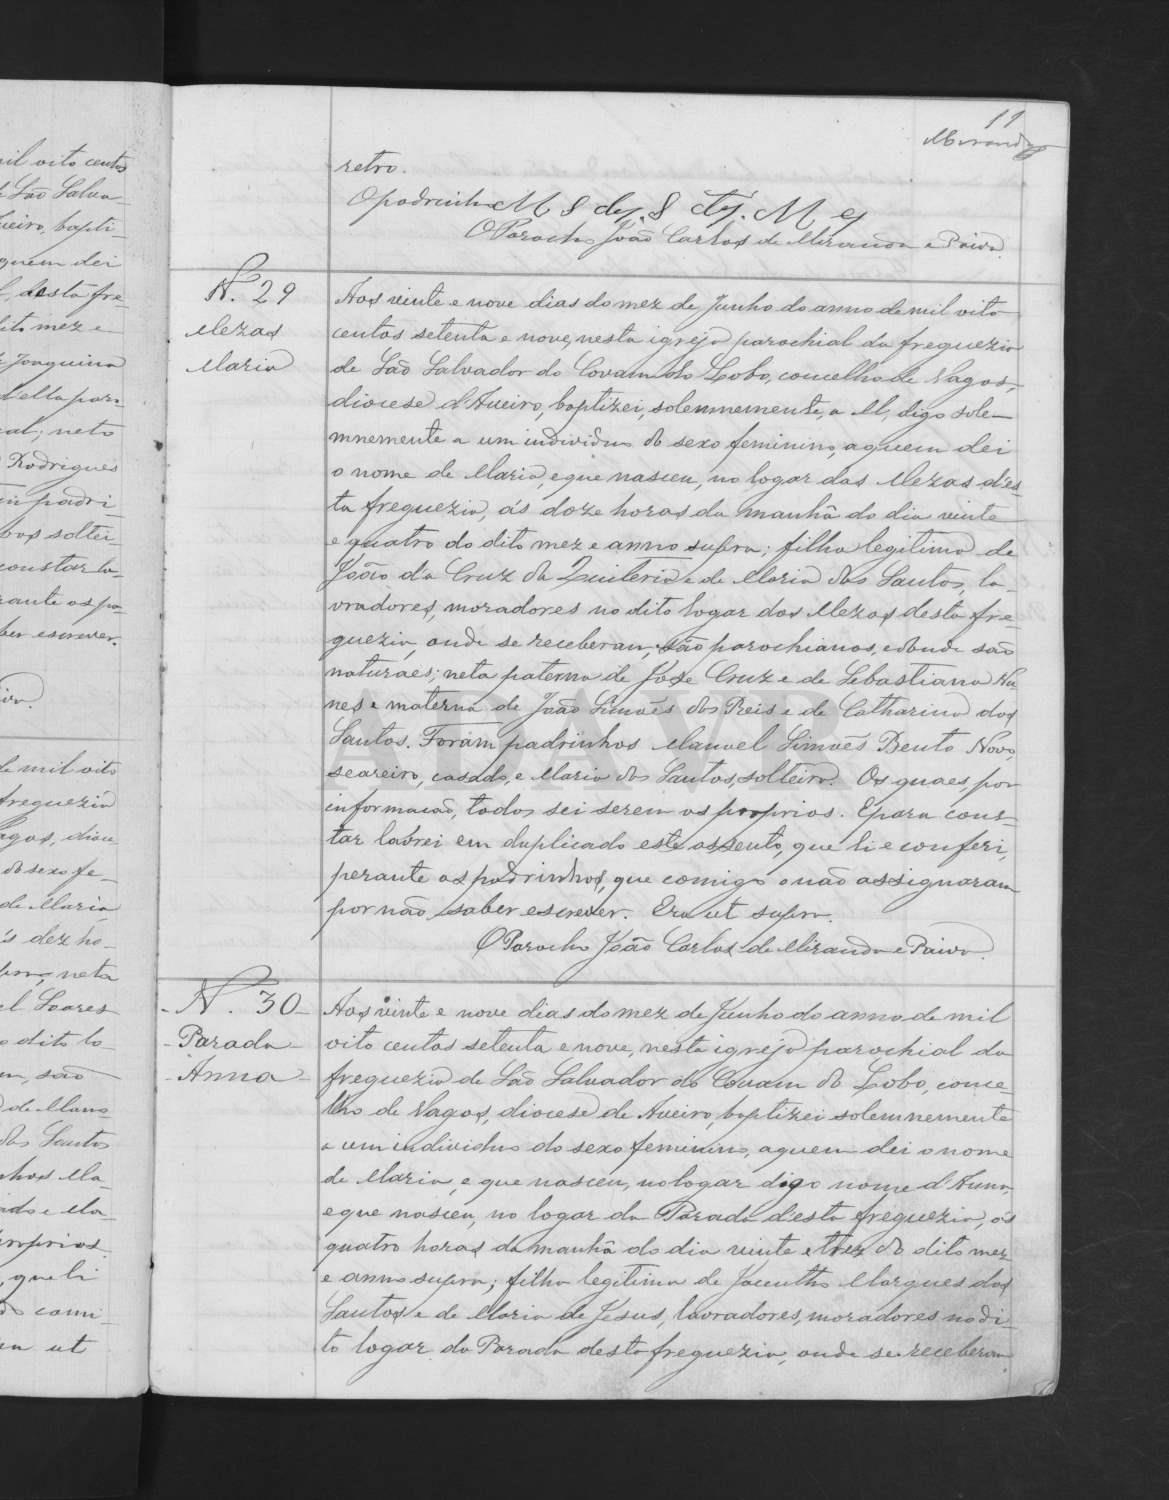 11
Miranda
retro.
O padrinho M S dy. S dy. M ey
O Parocho João Carlos de Miranda e Paiva.
N. 29
Mezas
Maria
Aos vinte e nove dias do mez de Junho do anno de mil oito
centos setenta e nove, nesta igreja parochial da freguezia
de São Salvador do Covam do Lobo, concelho de Vagos,
diocese d'Aveiro, baptizei, solemnemente, a M, digo sole-
mnemente a um individuo do sexo feminino, a quem dei
o nome de Maria, e que nasceu, no logar das Mezas d'es-
ta freguezia, ás doze horas da manhã do dia vinte
e quatro do dito mez e anno supra; filha legitima de
João da Cruz da Quiteria e de Maria dos Santos, la-
vradores, moradores no dito logar das Mezas desta fre-
guezia, onde se receberam, são parochianos, e donde são
naturaes; neta paterna de Jose Cruz e de Sebastiana Nu
nes e materna de João Simões dos Reis e de Catharina dos
Santos. Foram padrinhos Manoel Simões Bento Novo,
seareiro, casado, e Maria dos Santos, solteira. Os quaes, por
informação, todos sei serem os proprios. E para cons-
tar lavrei em duplicado este assento, que li e conferi,
perante os padrinhos, que comigo o não assignaram
por não saber escrever. Era ut supra.
O Parocho João Carlos de Miranda e Paiva.
N. 30
Parada
Anna
Aos vinte e nove dias do mez de Junho do anno de mil
oito centos setenta e nove, nesta igreja parochial da
freguezia de São Salvador do Covam do Lobo, conce
lho de Vagos, diocese de Aveiro, baptizei solemnemente
a um individuo do sexo feminino, a quem dei o nome
de Maria, e que nasceu, no logar digo nome d'Anna,
e que nasceu, no logar da Parada d'esta freguezia, ás
quatro horas da manhã do dia vinte e trez do dito mez
e anno supra; filha legitima de Jacintho Marques dos
Santos e de Maria de Jesus, lavradores, moradores no di-
to logar da Parada desta freguezia, onde se receberam
ADAVR